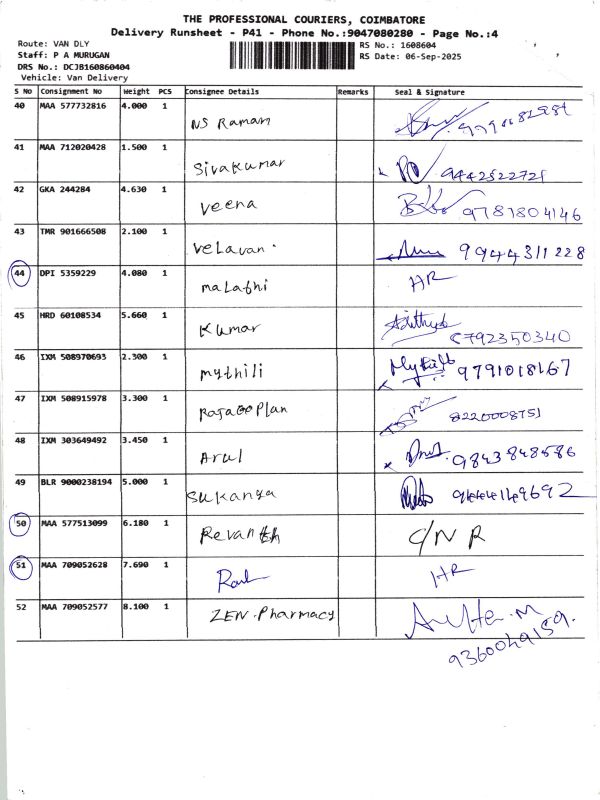 THE PROFESSIONAL COURIERS, COIMBATORE
Delivery Runsheet - P41 - Phone No.:9047080280 - Page No.:4
Route: VAN DLY
RS No.: 1608604
Staff: P A MURUGAN
RS Date: 06-Sep-2025
DRS No.: DCJB160860404
Vehicle: Van Delivery
S NO Consignment No Weight PCS Consignee Details Remarks Seal & Signature
40 MAA 577732816 4.000 1 NS Raman
41 MAA 712020428 1.500 1 Sivakumar 9442522721
42 GKA 244284 4.630 1 Veena 9781804146
43 TMR 901666508 2.100 1 Velavan. 9944311228
44 DPI 5359229 4.080 1 Malathi HR
45 HRD 60108534 5.660 1 Kumar 8792350340
46 IXM 508970693 2.300 1 Mythili 9791018167
47 IXM 508915978 3.300 1 8220008751
48 IXM 303649492 3.450 1 Arul 9843848586
49 BLR 9000238194 5.000 1 Sukanya
50 MAA 577513099 6.180 1 Revanth C/N R
51 MAA 709052628 7.690 1 HR
52 MAA 709052577 8.100 1 ZEN.Pharmacy
9360049159.